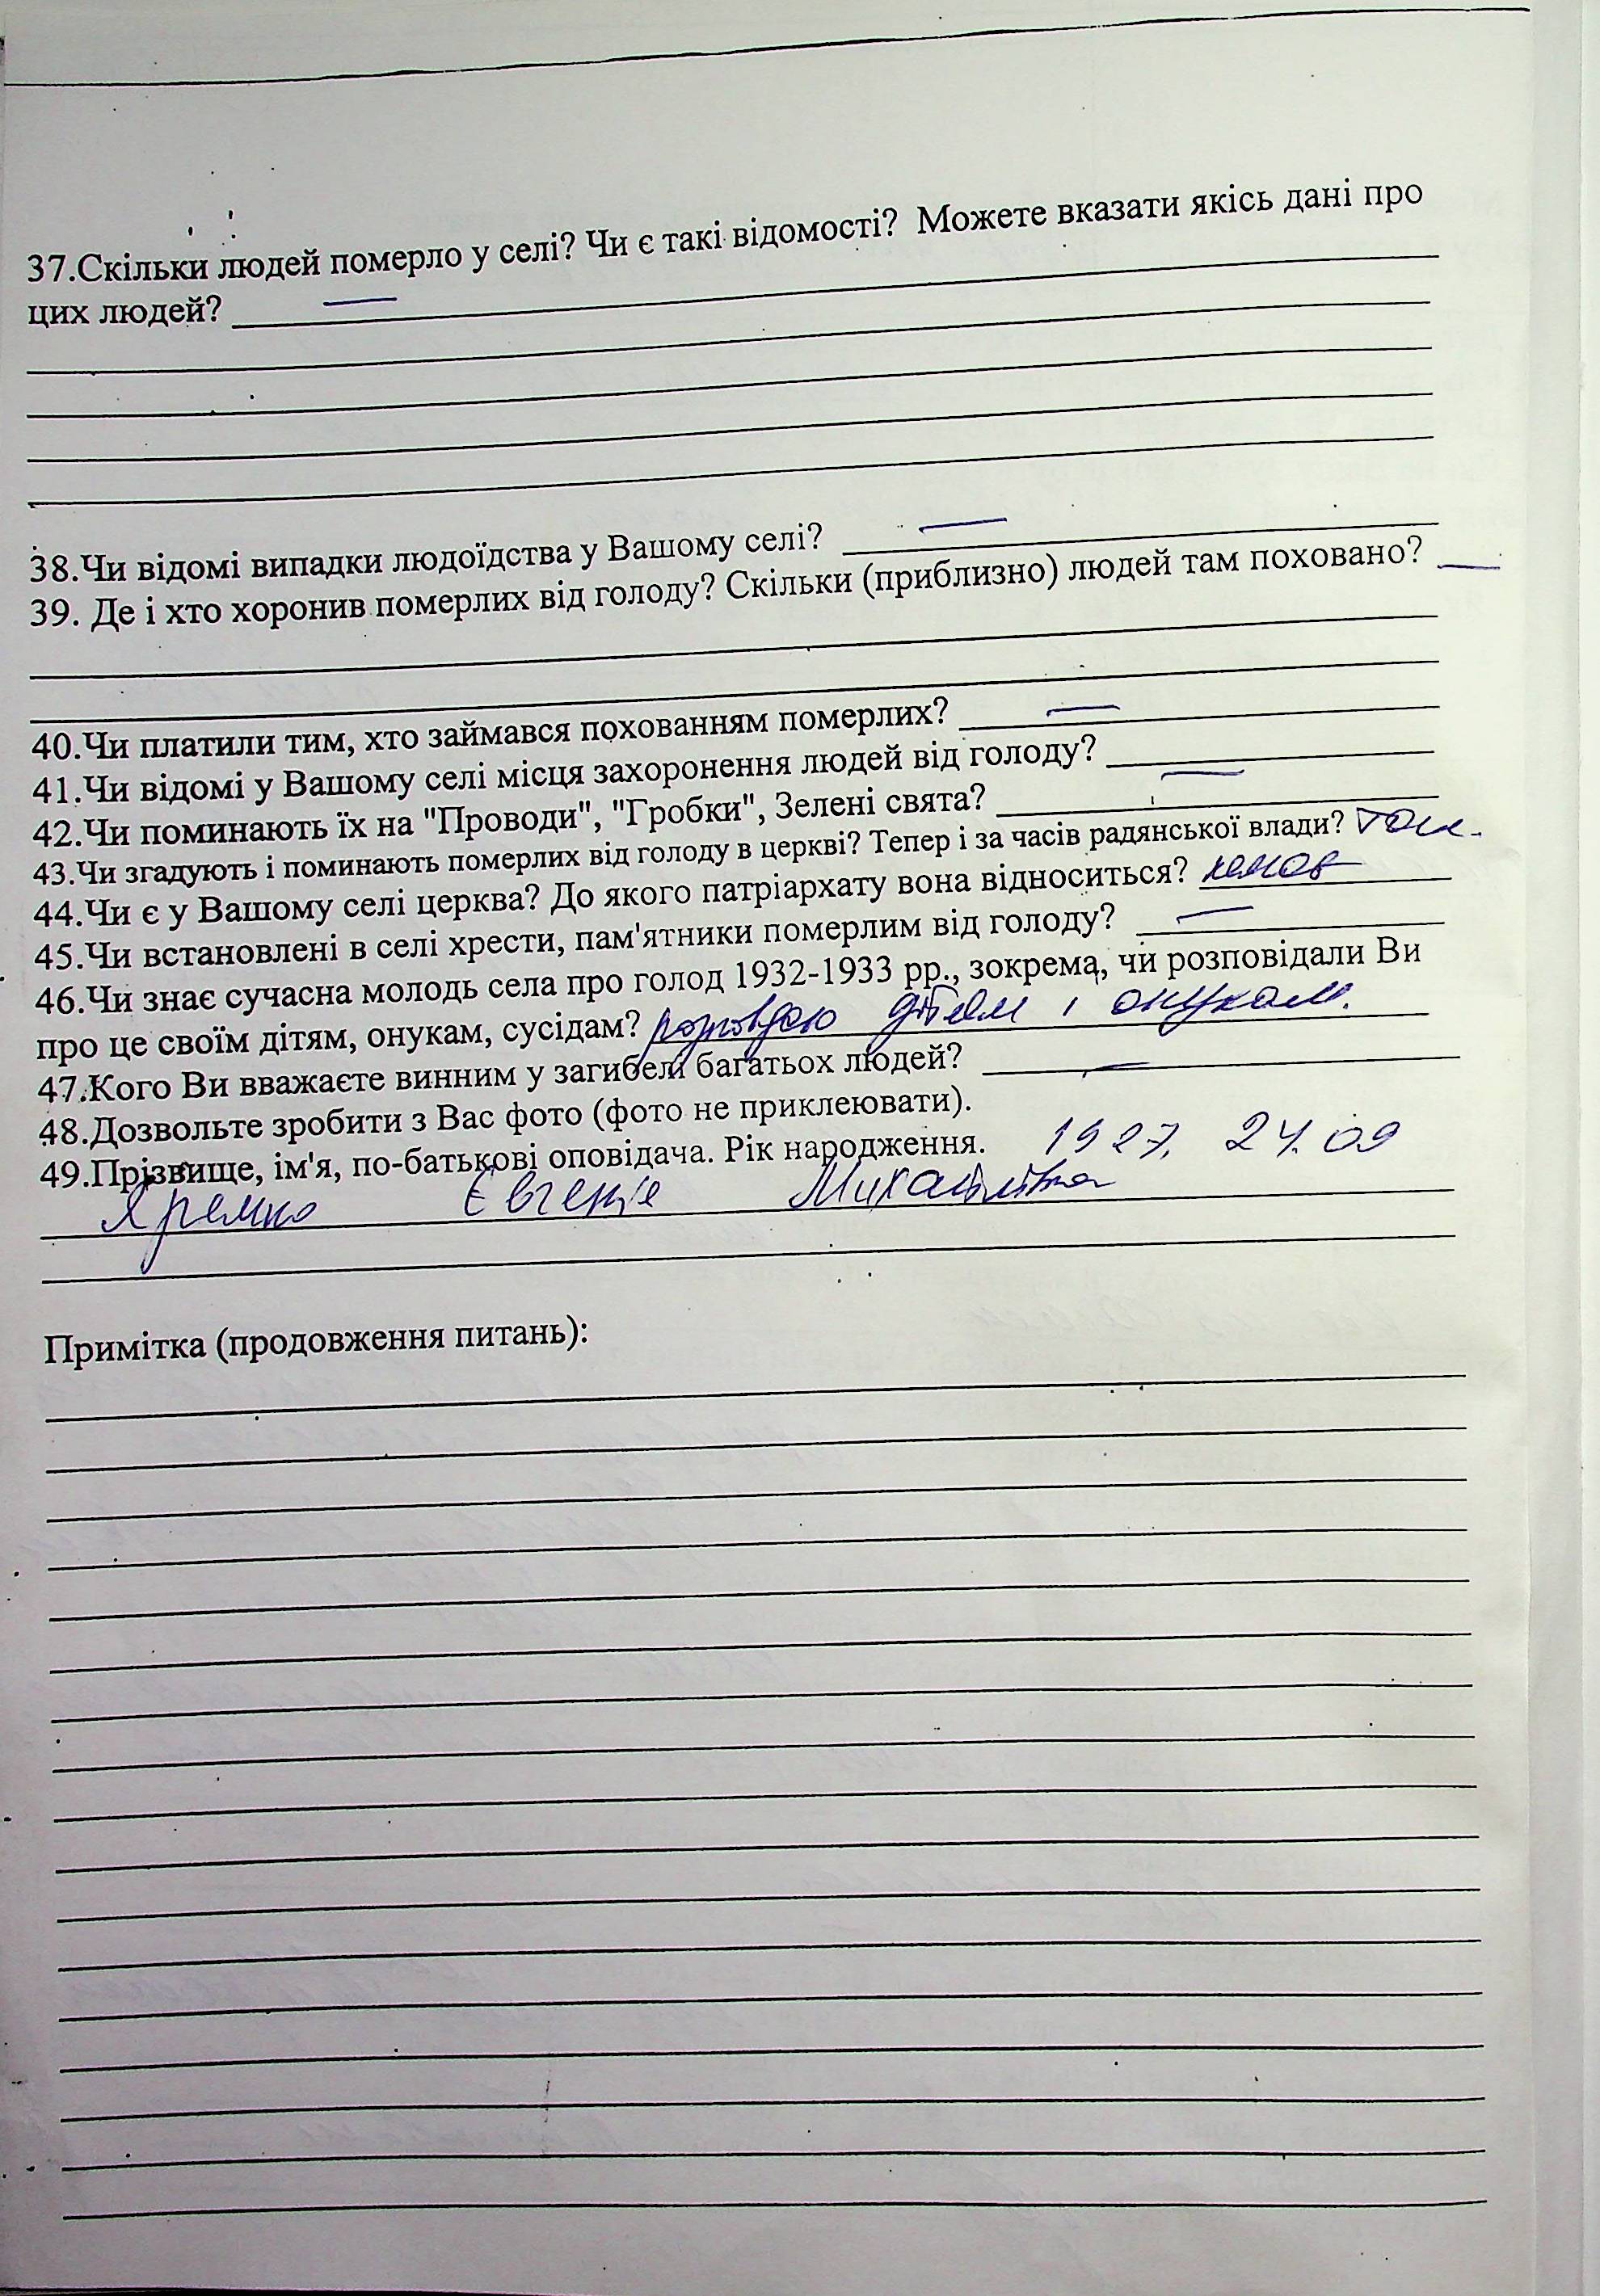 37.Скільки людей померло у селі? Чи є такі відомості? Можете вказати якісь дані про
цих людей? —
38.Чи відомі випадки людоїдства у Вашому селі? —
39. Де і хто хоронив померлих від голоду? Скільки (приблизно) людей там поховано? —
40.Чи платили тим, хто займався похованням померлих? —
41.Чи відомі у Вашому селі місця захоронення людей від голоду?
42.Чи поминають їх на "Проводи", "Гробки", Зелені свята? —
43.Чи згадують і поминають померлих від голоду в церкві? Тепер і за часів радянської влади?
44.Чи є у Вашому селі церква? До якого патріархату вона відноситься?
45.Чи встановлені в селі хрести, пам'ятники померлим від голоду? —
46.Чи знає сучасна молодь села про голод 1932-1933 рр., зокрема, чи розповідали Ви
про це своїм дітям, онукам, сусідам? розповідаю дітям і онукам.
47.Кого Ви вважаєте винним у загибелі багатьох людей? —
48.Дозвольте зробити з Вас фото (фото не приклеювати).
49.Прізвище, ім'я, по-батькові оповідача. Рік народження. 1927. 24.09
Яремко Євгенія Михайлівна
Примітка (продовження питань):